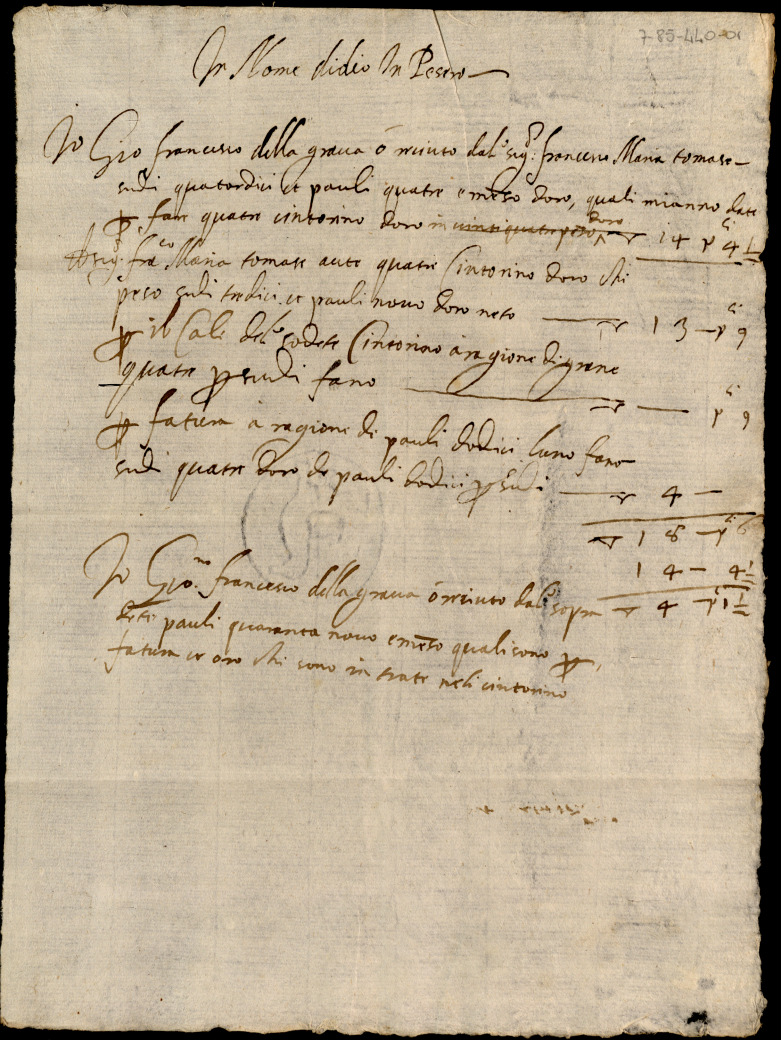 7-85-440-01
In Nome didio In Pesero
Io Gio francesco della graua ó reciuto dal sigr francesco Maria tomase
scudi quatordici et pauli quatre emeso doro, quali mianno date
p fare quatre cintorino doro in doro 14 p 4½
sigr fraco Maria tomase aute quatre Cintorino doro chi
peso scudi tredici et pauli novo doro neto 13 — p 9
p il Calo deli sodete Cintorino à ragione di grane
quatre p scudi fano — p 9
p fatura à ragione di pauli dodici luno fano
scudi quatre doro de pauli dodici p scudi 4 —
18 — p 6
14 — 4½
4 — p 1½
Io Gio francesco della graua ó reciuto dal sopra
dete pauli quaranta novo emeso quali sono p
fatura et oro chi sono in trate neli cintorino